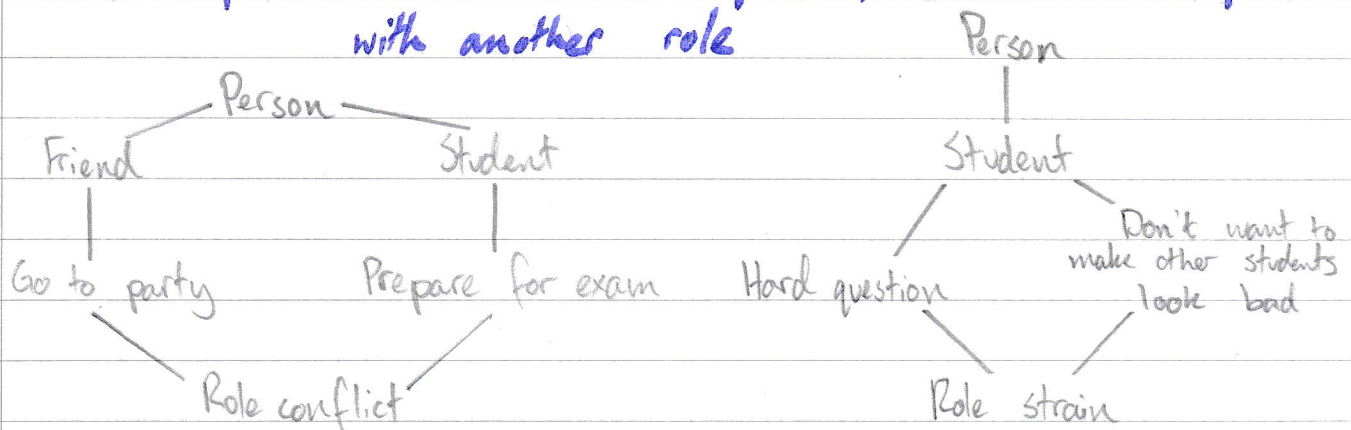 with another role
Person
Friend
Student
Go to party
Prepare for exam
Role conflict
Person
Student
Hard question
Don't want to
make other students
look bad
Role strain